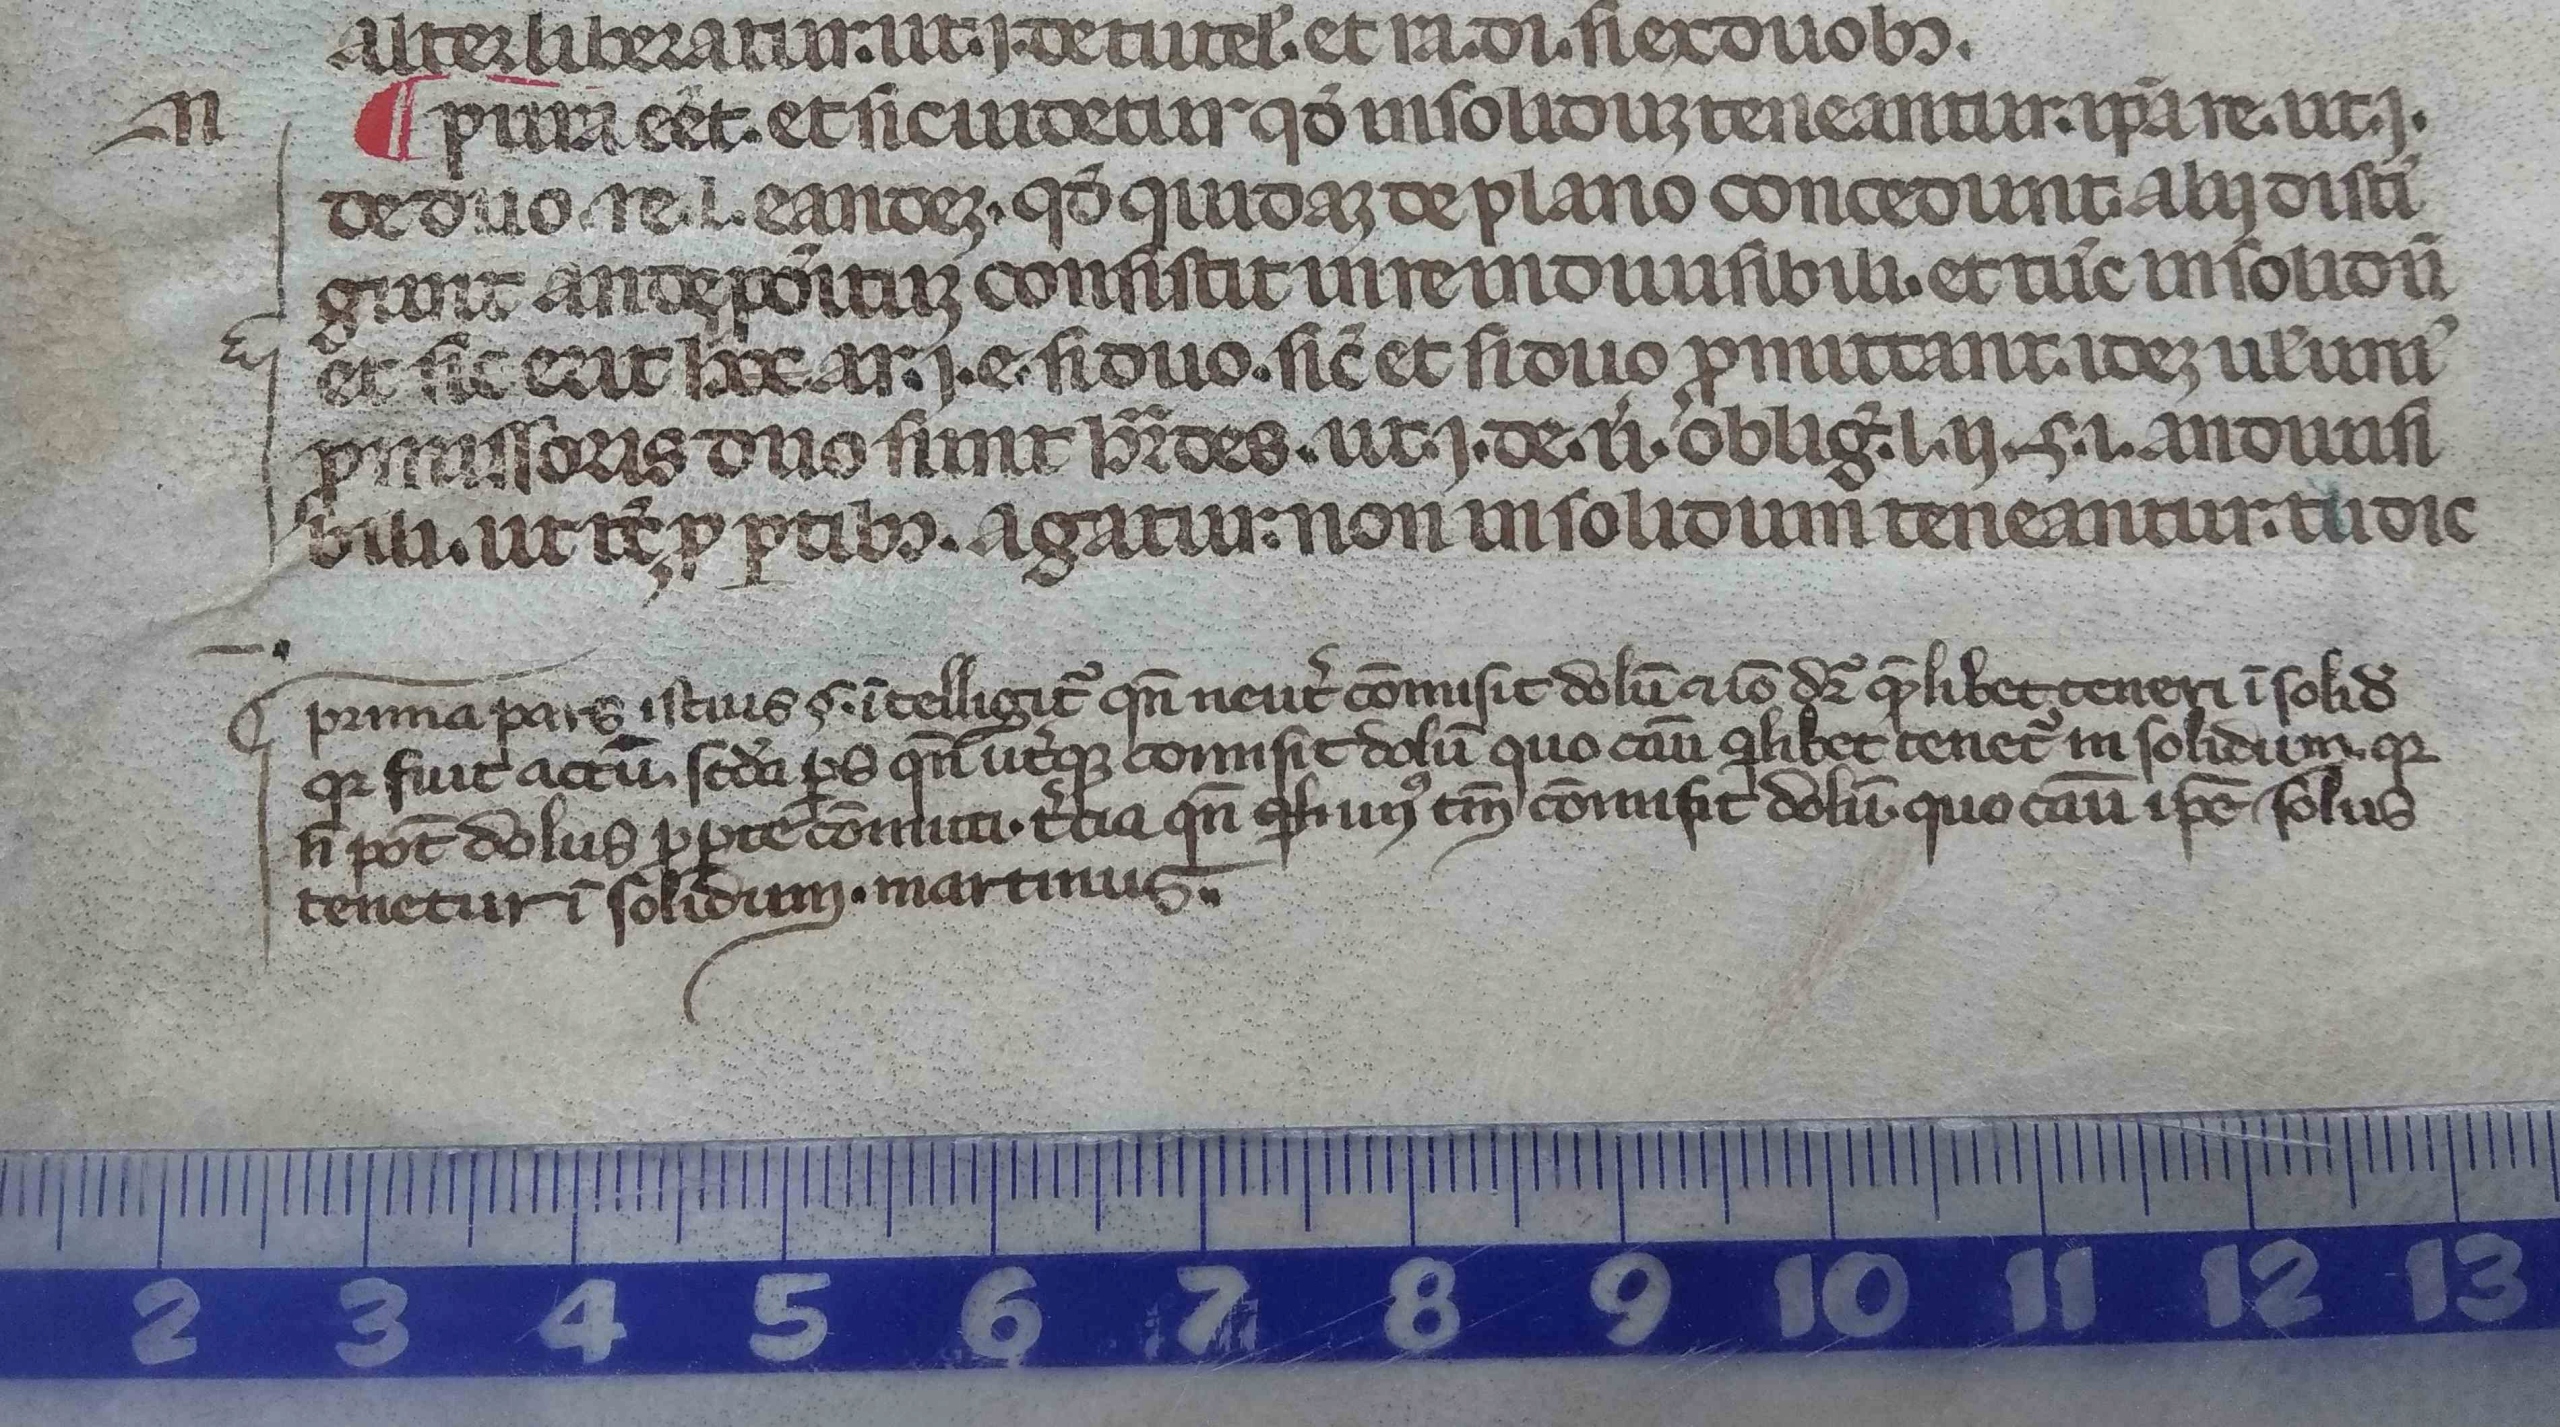 alter liberatur. ut. j. de tutel'. et ra. di. si ex duobꝰ.
N
¶ pura eēt. et sic uidetur qđ insoliduꝫ teneantur. ipā re. ut. j.
de duo. re. l. eandeꝫ. qđ quidaꝫ de plano concedunt. alij disti
gunt an depōituꝫ consistit in re indiuisibili. et tūc insolidū
et sic erit hoc ar. j. e. si duo. sic̄ et si duo ꝓmittant. ideꝫ ul' uni'
ꝓmissoris duo sunt hr̄des. ut. j. de. ū. obliḡ. l. ij. §. i. an diuisi
bili. ut tc̄ ꝓ ꝑtibꝰ. agatur. non insolidum teneantur. tu dic
prima pars istius §. ītelligit᷑ qn̄ neut̄ cōmisit dolū ⁊ iō dr̄ qlibet teneri ī solid
qꝛ fuit actū. scd̄a ps qn̄ ut̄qꝫ comisit dolū quo cāu qlibet tenet᷑ in solidum. qꝛ
n̄ pōt dolus ꝓ ꝑte cōmitti. t̄cia qn̄ un᷒ tm̄ cōmisit dolū. quo cāu ipē solus
tenetur ī solidum. martinus.
2 3 4 5 6 7 8 9 10 11 12 13